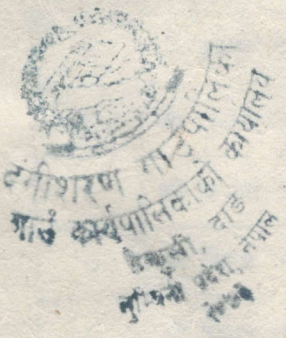 दंगीशरण गाउँपालिका
गाउँ कार्यपालिकाको कार्यालय
हेकुली, दाङ
लुम्बिनी प्रदेश, नेपाल